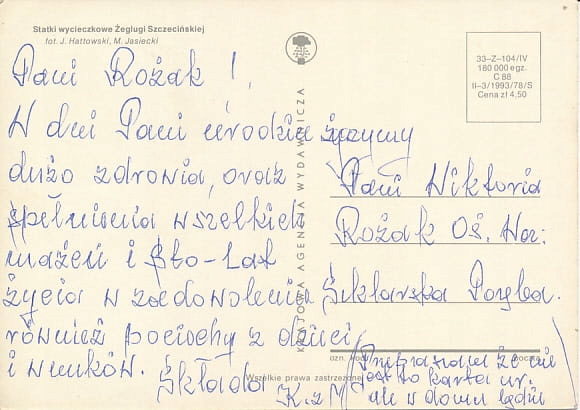 Statki wycieczkowe Żeglugi Szczecińskiej
fot. J. Hattowski, M. Jasiecki
Pani Rożak!
W dni Pani urodzin życzymy
dużo zdrowia, oraz
spełnienia wszelkich
mażeń i Sto-Lat
życia w zadowolenia
również pociechy z dzieci
i wnuków. Składa
K. z
KRAJOWA AGENCJA WYDAWNICZA
33-Z-104/IV
180 000 egz.
C 88
II-3/1993/78/S
Cena zł 4,50
Pani Wiktoria
Rożak Oś. Ha:
Szklarska Poręba.
Wszelkie prawa zastrzeżone
(Przepraszam że nie
jest to karta ur.
ale w domu